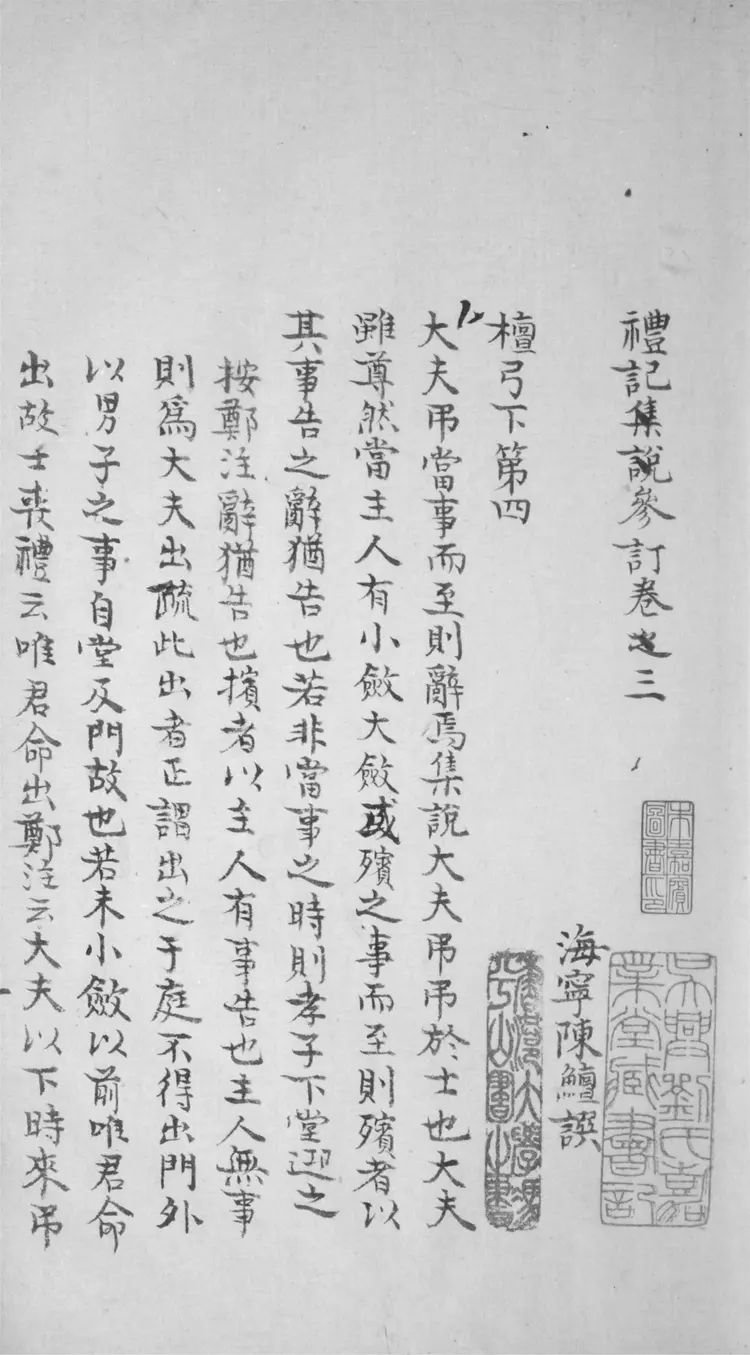 禮記集說參訂卷之三
朱嘉賓圖書印
吳興劉氏嘉業堂藏書記
海寧陳鱣譔
檀弓下第四
大夫弔當事而至則辭焉集說大夫弔弔於士也大夫
雖尊然當主人有小斂大斂或殯之事而至則殯者以
其事告之辭猶告也若非當事之時則孝子下堂迎之
按鄭注辭猶告也擯者以主人有事告也主人無事
則爲大夫出疏此出者正謂出之于庭不得出門外
以男子之事自堂及門故也若未小斂以前唯君命
出故士喪禮云唯君命出鄭注云大夫以下時來弔